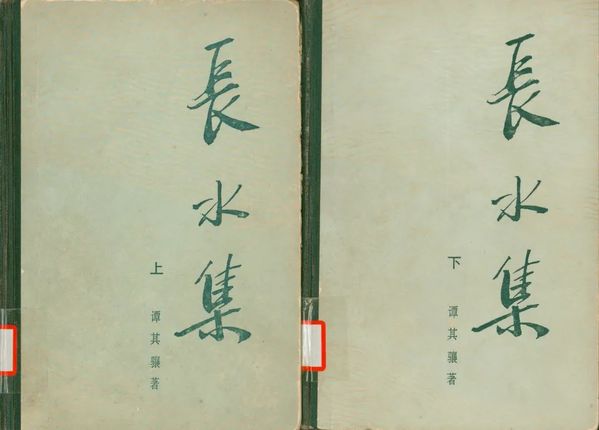 長水集
上
谭其骧著
長水集
下
谭其骧著